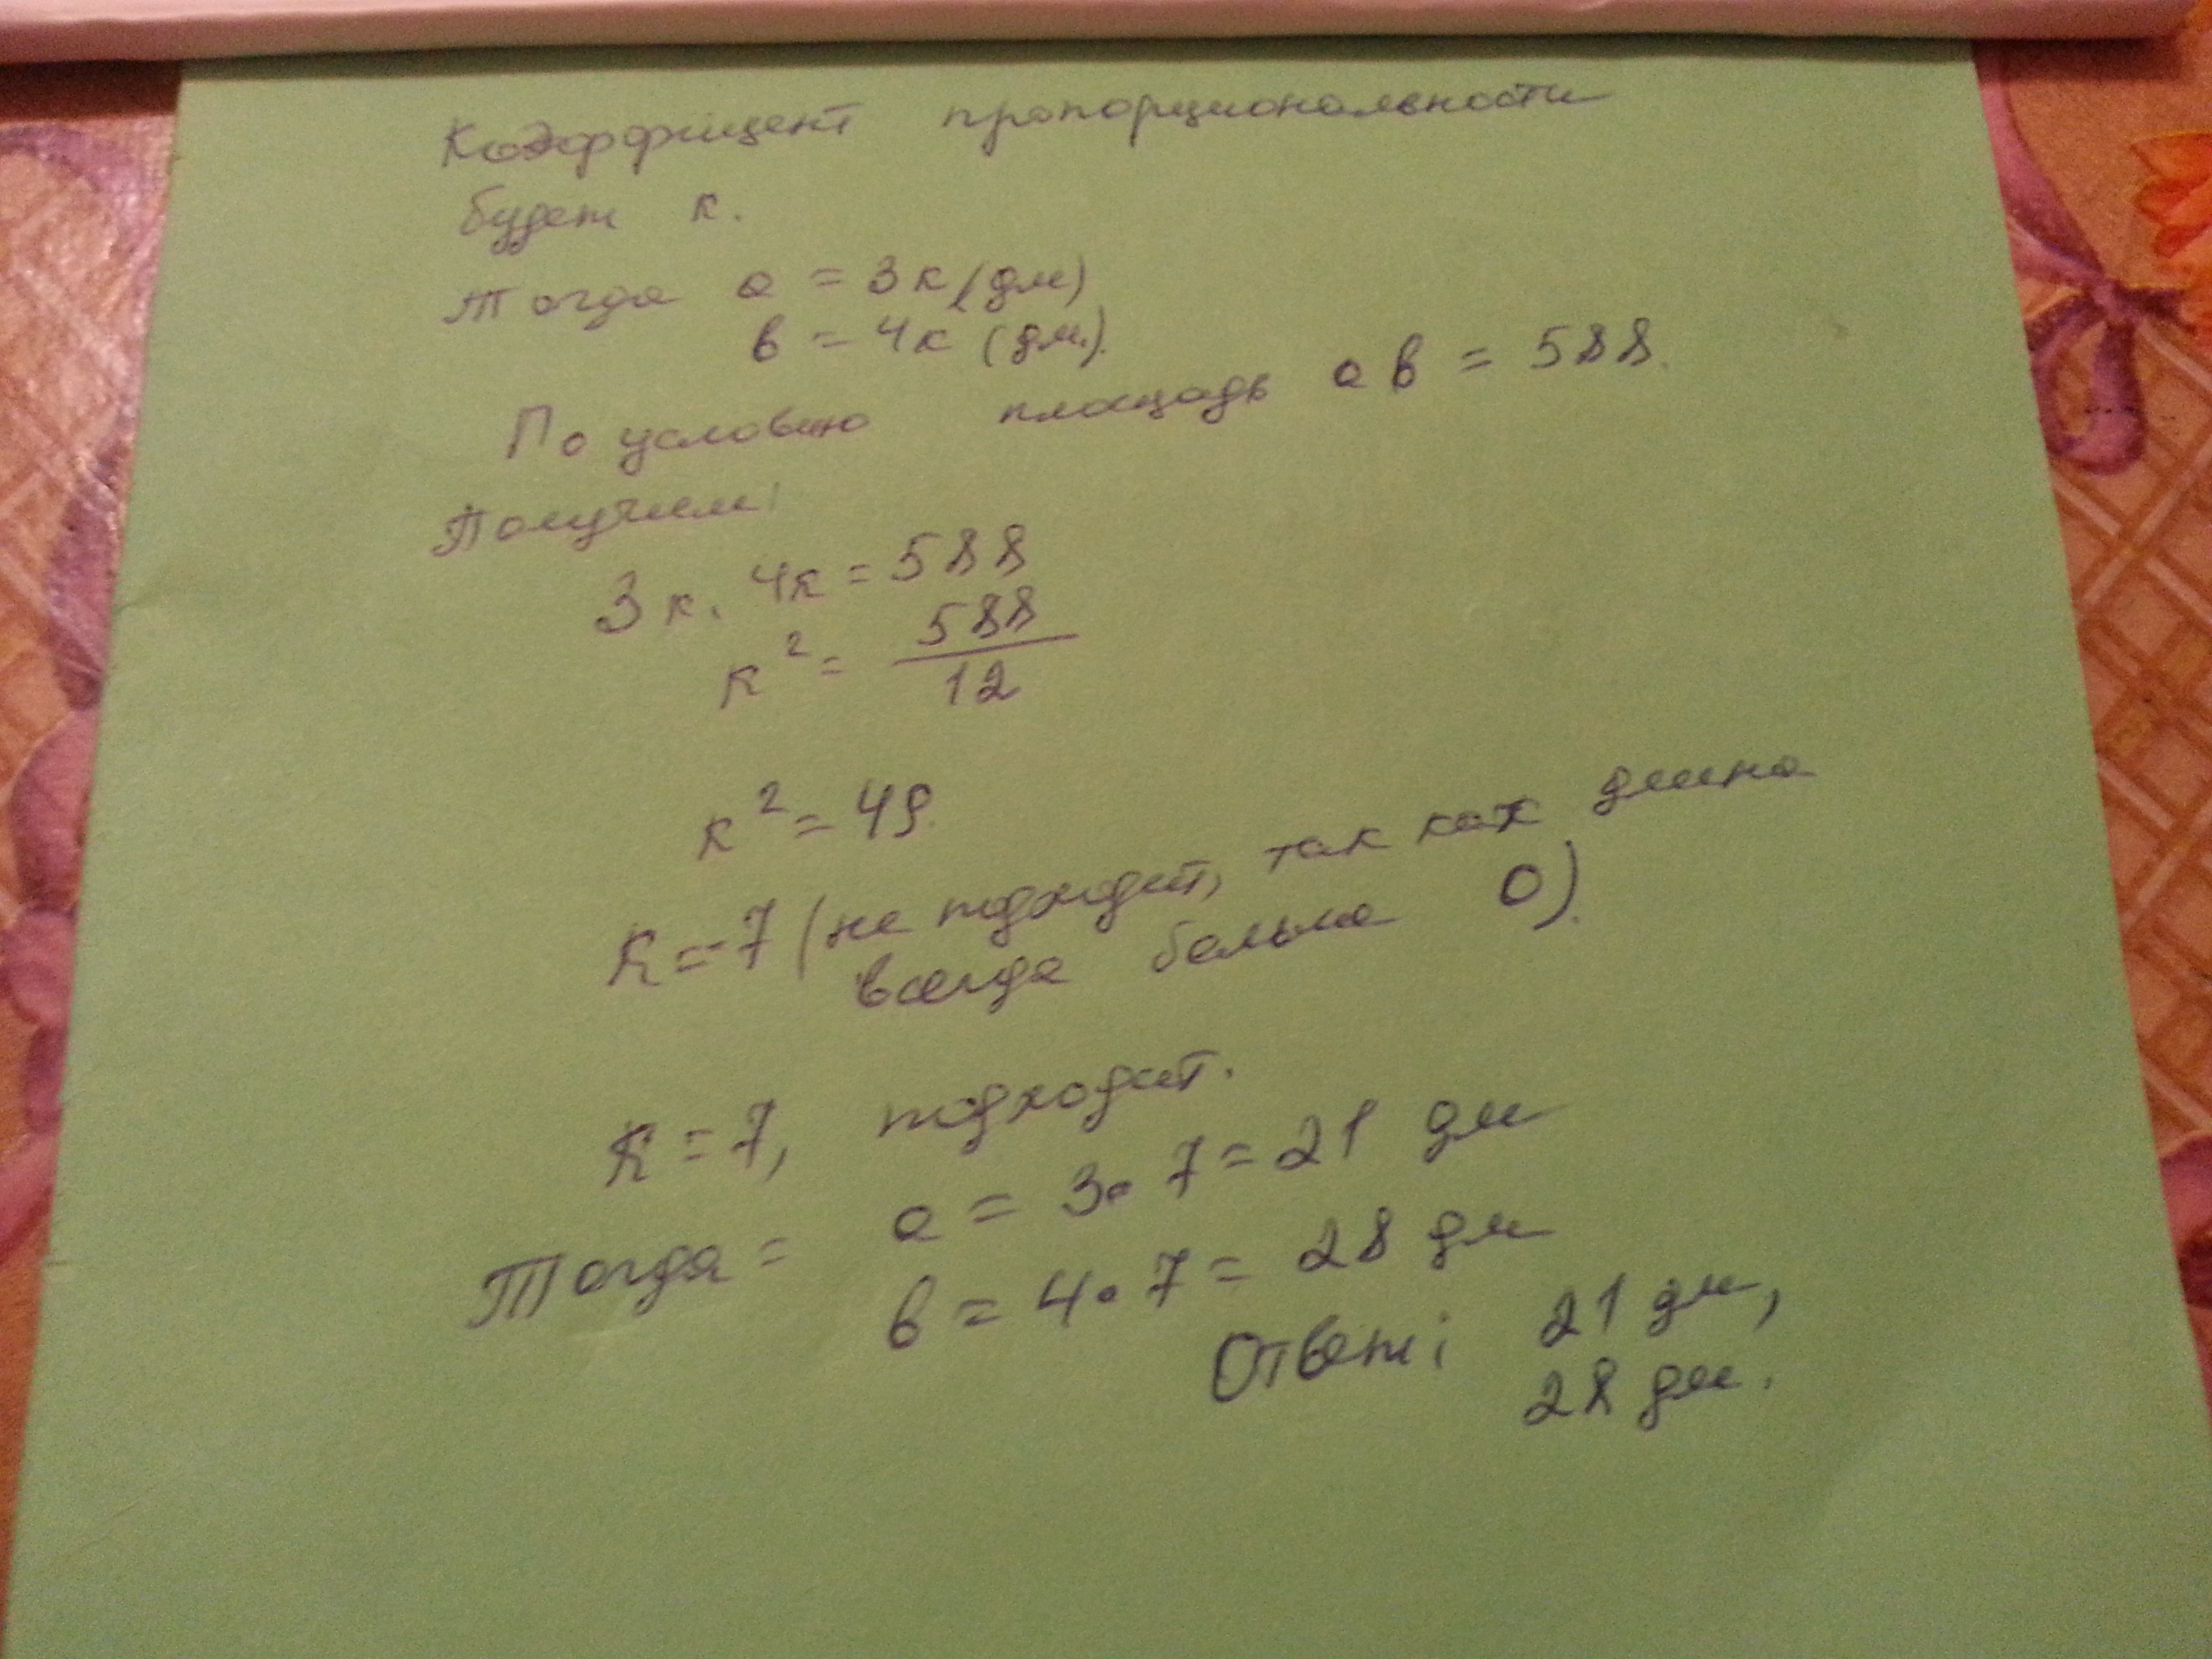 Коэффициент пропорциональности
будет к.
Тогда а = 3к (дм)
в = 4к (дм).
По условию площадь ав = 588.
Получим:
3к. 4к = 588
к² = 588/12
к² = 49.
К = -7 (не подходит, так как длина
всегда больше 0).
К = 7, подходит.
Тогда = а = 3•7 = 21 дм
в = 4•7 = 28 дм
Ответ: 21 дм,
28 дм.